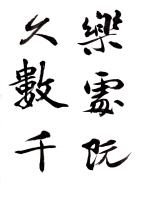 樂處阮
久數千